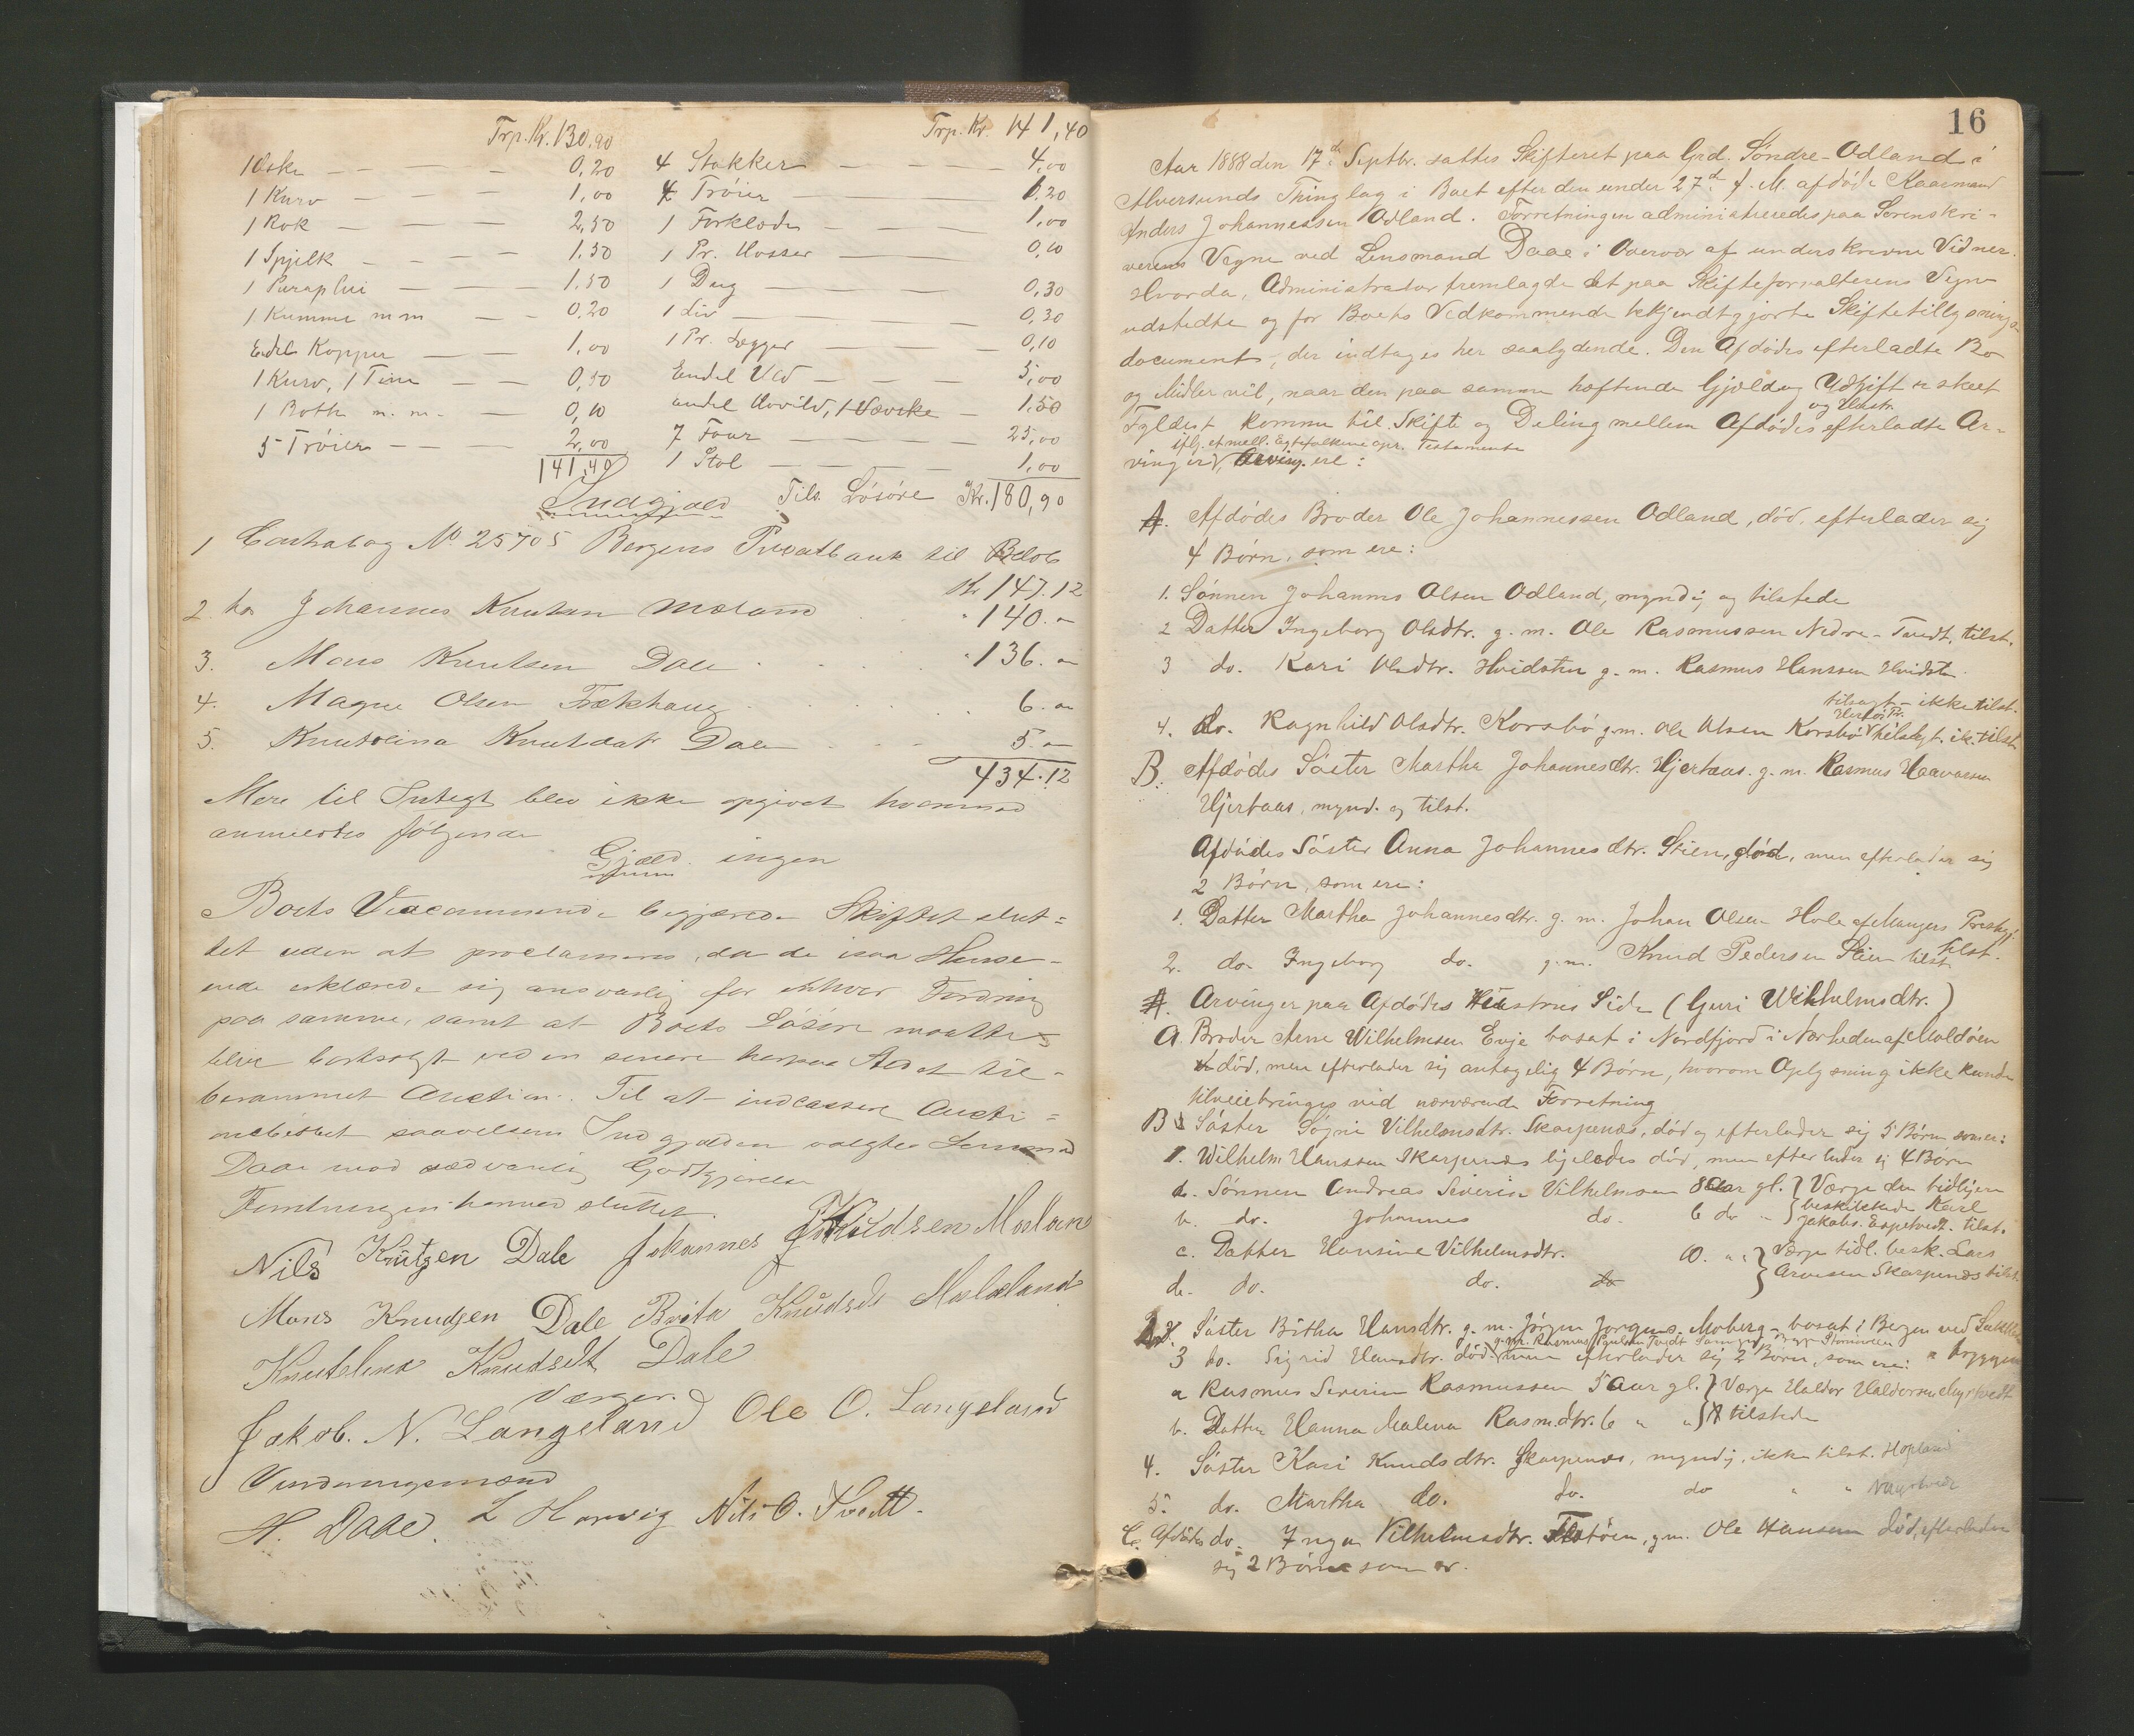 Trp. Kr. 130,90
1 Øske — — — 0,20
1 Kurv — — — 1,00
1 Rok — — — 2,50
1 Spjelk — — — 1,50
1 Paraplui — — — 1,50
1 Kumme m m — — 0,20
Endel Kopper — — 1,00
1 Kurv, 1 Tine — — 0,50
1 Botte m. m. — — 0,10
5 Trøier — — 2,00
141,40
Trp. Kr. 141,40
4 Stakker — — — 4,00
4 Trøier — — — 1,20
1 Forklæde — — — 1,00
1 Pr. Hosser — — — 0,10
1 Dug — — — 0,30
1 Liv — — — 0,30
1 Pr. Lægger — — — 0,10
Endel Ved — — — 5,00
andel 1,50
7 Faar — — — 25,00
1 Stol — — — 1,00
Tils. Løsøre Kr. 180,90
Indgjæld
1 Contrabog No 25705 Bergens Privatbank til Beløb
Kr 147.12
2. hos Johannes Knutsen Mæland " 140. "
3. Mons Knutsen Dale " 136. "
4. Magne Olsen Frækhaug 6. "
5. Knutolina Knutsdatr Dale 5. "
434.12
Mere til Indtegt blev ikke opgivet hvormed
anmeldtes følgende
Gjæld. ingen
Boets Vedkommende begjærede Skiftet slut=
tet uden at proclameres, da de i saa Hense-
ende erklærede sig ansvarlig for enhver Fordring
paa samme, samt at Boets Løsøre maatte
blive bortsolgt ved en senere herpaa Stedet til-
berammet Auction. Til at indcassere Aucti=
onsbeløbet saavelsom Indgjælden valgtes Lensmand
Daae mod sædvanlig Godtgjørelse
Forretningen hermed sluttet.
Nils Knutzen Dale Johannes Mæland
Mons Knudsen Dale Brita Knudsdt Mæland
Knutelina Knudsdt Dale
Værger.
Jakob. N. Langeland Ole O. Langeland
Vurderingsmænd
H. Daae. L Horvig Nils O. Tvedt.
16
Aar 1888 den 17de Septbr. sattes Skifteret paa Grd. Søndre-Odland i
Alversunds Thinglag i Boet efter den under 27de f. M. afdøde Kaarmand
Anders Johannessen Odland. Forretningen administreredes paa Sorenskri-
verens Vegne ved Lensmand Daae i Overvær af underskrevne Vidner.
Hvorda, Administrator fremlagde det paa Skifteforvalterens Vegne
udstedte og for Boets Vedkommende bekjendtgjorte Skiftetillysnings
document, der indtages her saalydende. Den Afdødes efterladte Bo
og Midler vil, naar den paa samme heftende Gjæld og Udgift er skeet
Fyldest komme til Skifte og Deling mellem Afdødes og Hustr. efterladte Ar-
ifig. et mell. Egtefolkene opr. Testamente
vinger, Arving. ere:
A. Afdødes Broder Ole Johannessen Odland, død, efterlader sig
4 Børn, som ere:
1. Sønnen Johannes Olsen Odland, myndig og tilstede
2 Datter Ingeborg Olsdtr. g. m. Ole Rasmussen Nedre-Tvedt, tilst.
3 do. Kari Olsdtr. Hvidsten g. m. Rasmus Hanssen Hvidsten
tilsagt - ikke tilst.
4. do. Ragnhild Olsdtr. Korsbø g. m. Ole Olsen Korsbø Herlø Pr. tilsagt. ik. tilst
B. Afdødes Søster Martha Johannesdtr. Hjertaas. g. m. Rasmus Haavarsen
Hjertaas, mynd. og tilst.
Afdødes Søster Anna Johannesdtr. Stien, død, men efterlader sig
2 Børn, som ere:
1. Datter Martha Johannesdtr. g. m. Johan Olsen Hole af Mangers Prestegj.
tilst.
2. do. Ingeborg do. g. m. Knud Pedersen Stien tilst
A. Arvinger paa Afdødes Hustrues Side (Guri Wilhelmsdtr.)
a. Broder Arne Wilhelmsen Evje bosat i Nordfjord i Nærheden af Moldøen
død, men efterlader sig antagelig 4 Børn, hvorom Oplysning ikke kunde
tilveiebringes ved nærværende Forretning
B Søster Søgni Vilhelmsdtr. Skarpenæs, død og efterlader sig 5 Børn som er:
1. Wilhelm Hanssen Skarpenæs ligeledes død, men efterlader sig 4 Børn
a. Sønnen Andreas Severin Vilhelmsen 8 Aar gl. } Værge den tidligere
b. do. Johannes do. 6 do " } beskikkede Karl
Jakobs. Espetvedt. tilst.
c. Datter Hansine Vilhelmsdtr. 10. " " } Værge tidl. besk. Lars
d. do. do. do } Arnesen Skarpenæs tilst.
2. Søster Britha Hansdtr. g. m. Jørgen Jørgens. Moberg - bosat i Bergen ved
3 do. Sigrid Hansdtr. død. g. m. Rasmus Paulsen Tvedt men efterlader sig 2 Børn, som ere:
a Rasmus Severin Rasmussen 5 Aar gl. } Værge Haldor Haldorsen
b. Datter Hanna Malena Rasm.dtr. 6 " " } tilstede
4. Søster Kari Knudsdtr. Skarpenæs, myndig, ikke tilst. Hopland
5. do. Martha do. do. do " "
C. Afdødes do. Inga Vilhelmsdtr. Flatøen, g. m. Ole Hansen død, efterlader
sig 2 Børn som er.